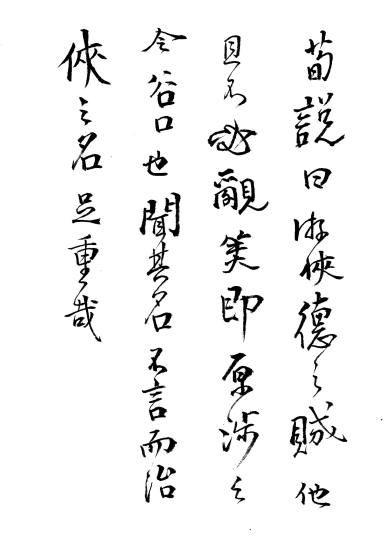 荀說曰游俠德之賊他
且不必覼即原涉之
令谷口也聞其名不言而治
俠之名足重哉